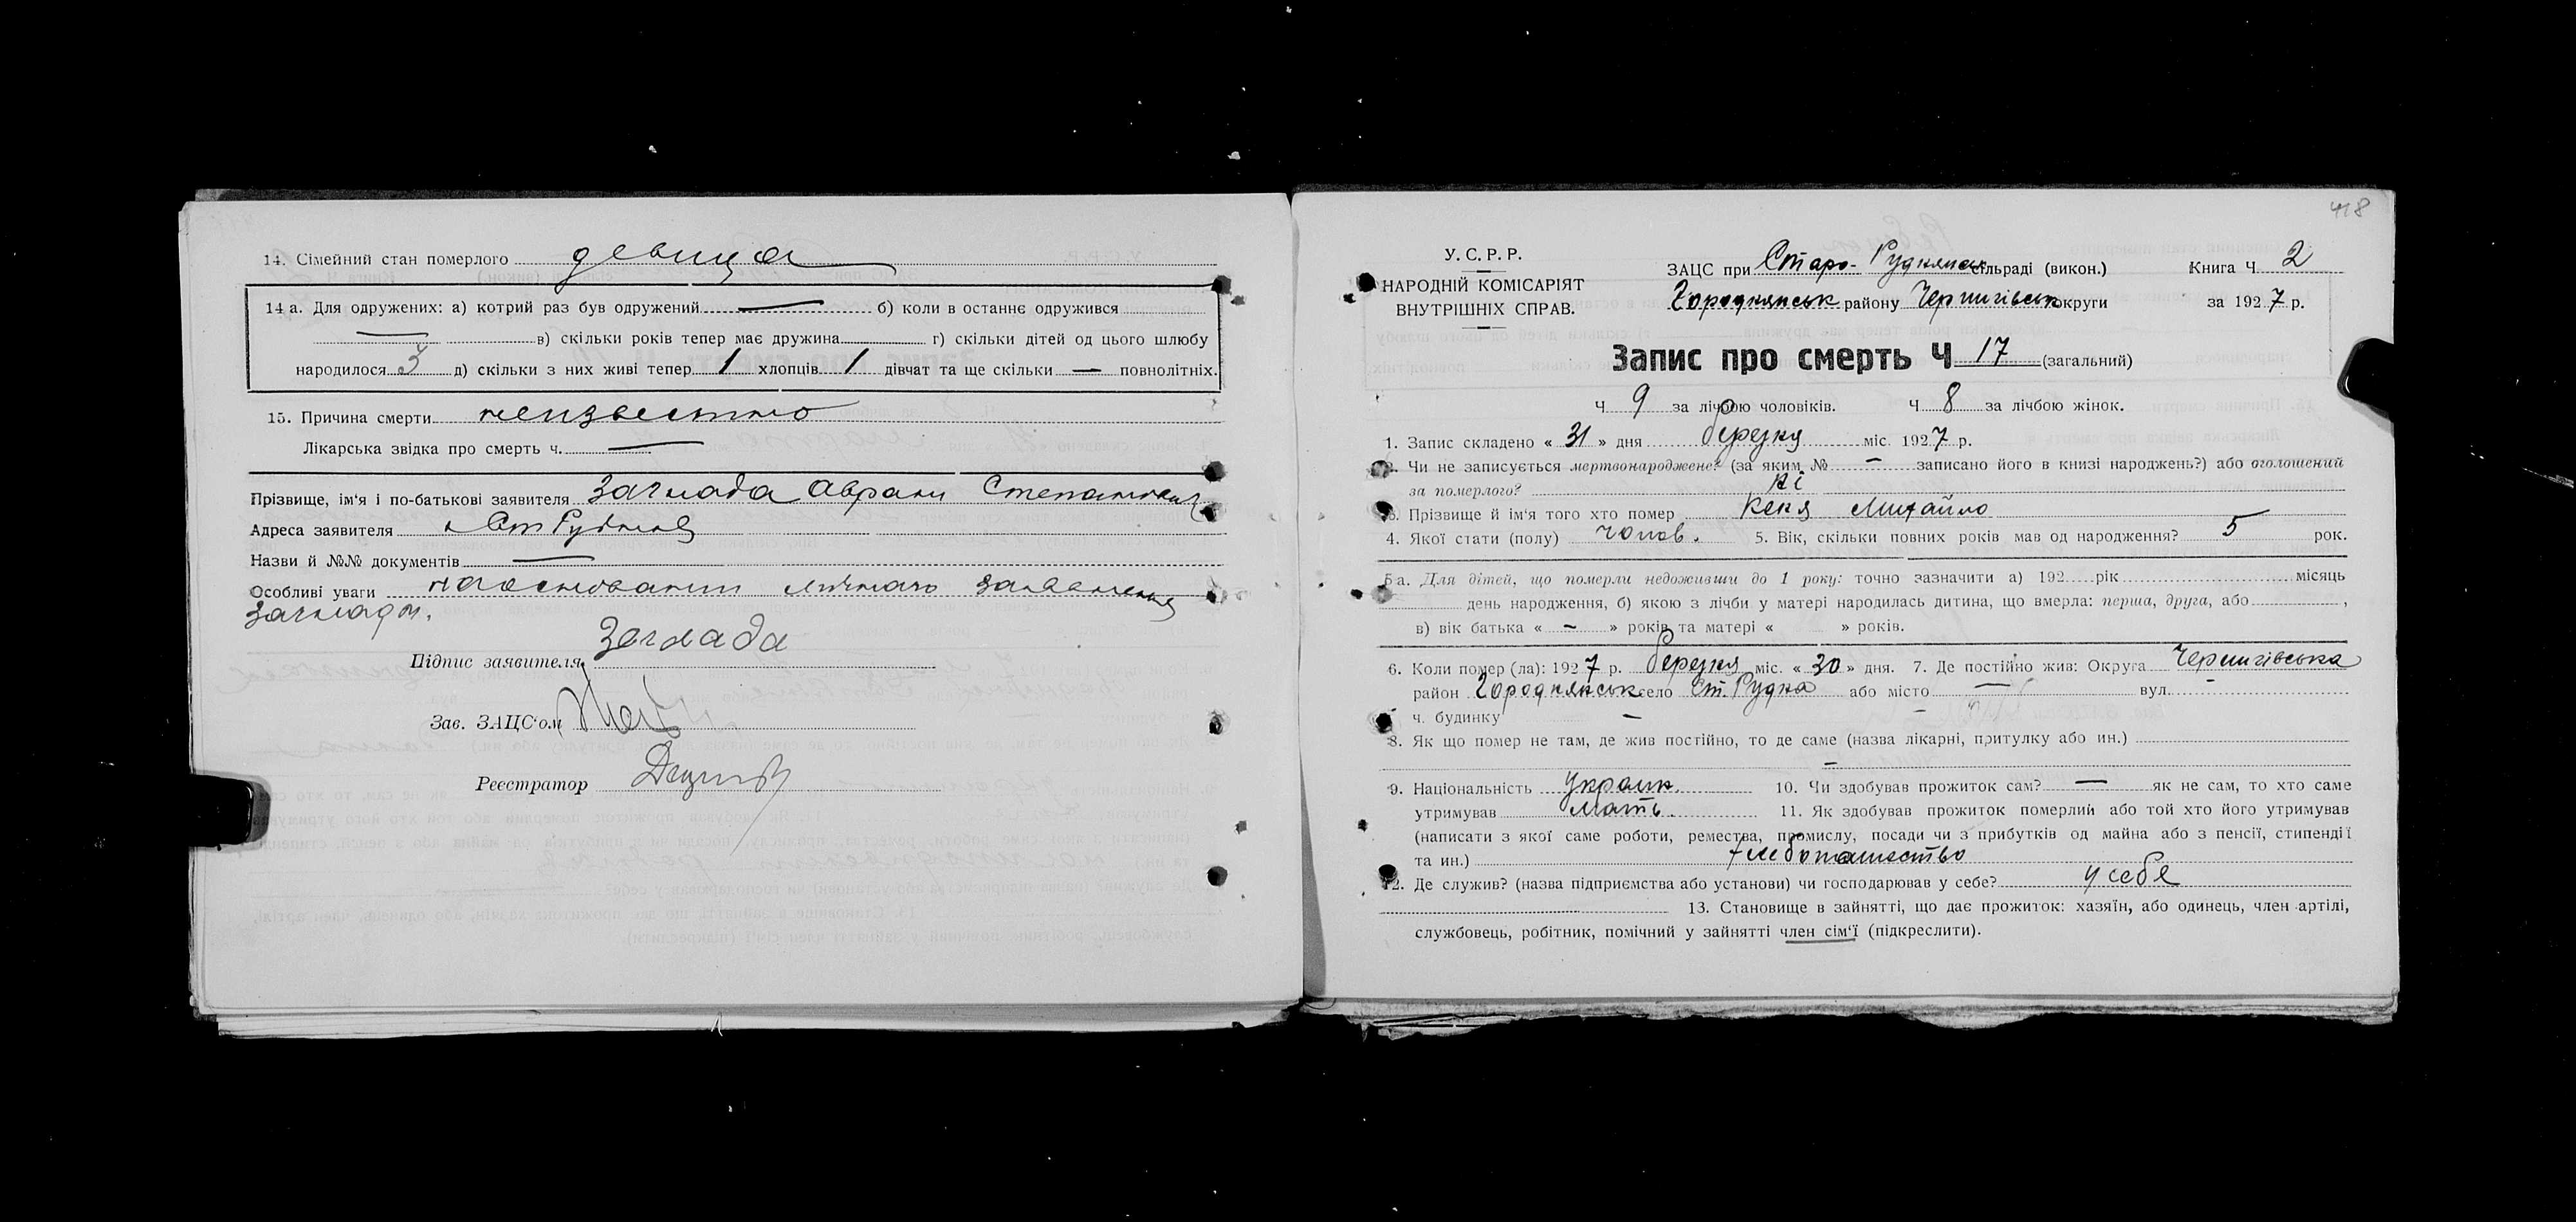 14. Сімейний стан померлого девица
14 а. Для одружених: а) котрий раз був одружений — б) коли в останнє одружився
— в) скільки років тепер має дружина г) скільки дітей од цього шлюбу
народилося 3 д) скільки з них живі тепер 1 хлопців 1 дівчат та ще скільки — повнолітніх.
15. Причина смерти неизвестно
Лікарська звідка про смерть ч. —
Прізвище, ім'я і по-батькові заявителя Заглада Аврам Степанович
Адреса заявителя Ст Рудня
Назви й №№ документів —
Особливі уваги на основании личного заявления
Заглады.
Підпис заявителя Заглада
Зав. ЗАЦС'ом
Реєстратор
418
У. С. Р. Р.
НАРОДНІЙ КОМІСАРІЯТ
ВНУТРІШНІХ СПРАВ.
ЗАЦС при Старо-Руднянськ сільраді (викон.) Книга Ч. 2
Городнянськ району Чернигівськ округи за 1927 р.
Запис про смерть Ч 17 (загальний)
Ч 9 за лічбою чоловіків. Ч 8 за лічбою жінок.
1. Запис складено « 31 » дня березня міс. 1927 р.
2. Чи не записується мертвонароджене? (за яким № — записано його в книзі народжень?) або оголошений
за померлого? Ні
3. Прізвище й ім'я того хто помер Кекя Михайло
4. Якої стати (полу) чолов. 5. Вік, скільки повних років мав од народження? 5 рок.
5 а. Для дітей, що померли недоживши до 1 року: точно зазначити а) 192 рік місяць
день народження, б) якою з лічби у матері народилась дитина, що вмерла: перша, друга, або ,
в) вік батька « — » років та матері « » років.
6. Коли помер (ла): 1927 р. березня міс. « 30 » дня. 7. Де постійно жив: Округа Чернигівська
район Городнянськ село Ст. Рудня або місто — вул. —
ч. будинку —
8. Як що помер не там, де жив постійно, то де саме (назва лікарні, притулку або ин.)
—
9. Національність Украин. 10. Чи здобував прожиток сам? — як не сам, то хто саме
утримував Мать. 11. Як здобував прожиток померлий або той хто його утримував
(написати з якої саме роботи, ремества, промислу, посади чи з прибутків од майна або з пенсії, стипендії
та ин.) хлебопашество
12. Де служив? (назва підприємства або установи) чи господарював у себе? у себе
13. Становище в зайнятті, що дає прожиток: хазяїн, або одинець, член артілі,
службовець, робітник, помічний у зайнятті член сім'ї (підкреслити).